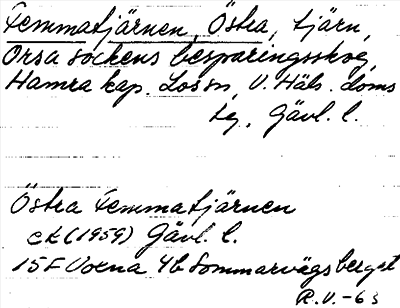 Femmatjärnen, Östra, tjärn,
Orsa sockens besparingsskog,
Hamra kap. Los sn, V. Häls. doms
sg, Gävl. l.
Östra Femmatjärnen
ek (1959) Gävl. l.
15F Voxna 4b Sommarvägsberget
R.V.-63